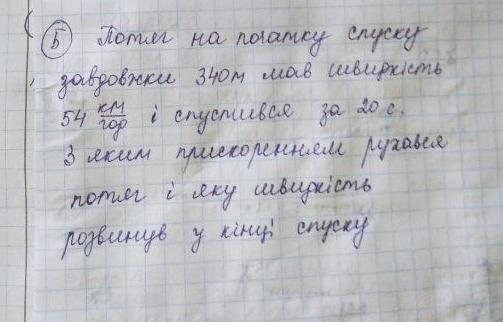 5 Потяг на початку спуску
завдовжки 340м мав швидкість
54 км/год і спустився за 20 с.
З яким прискоренням рухався
потяг і яку швидкість
розвинув у кінці спуску